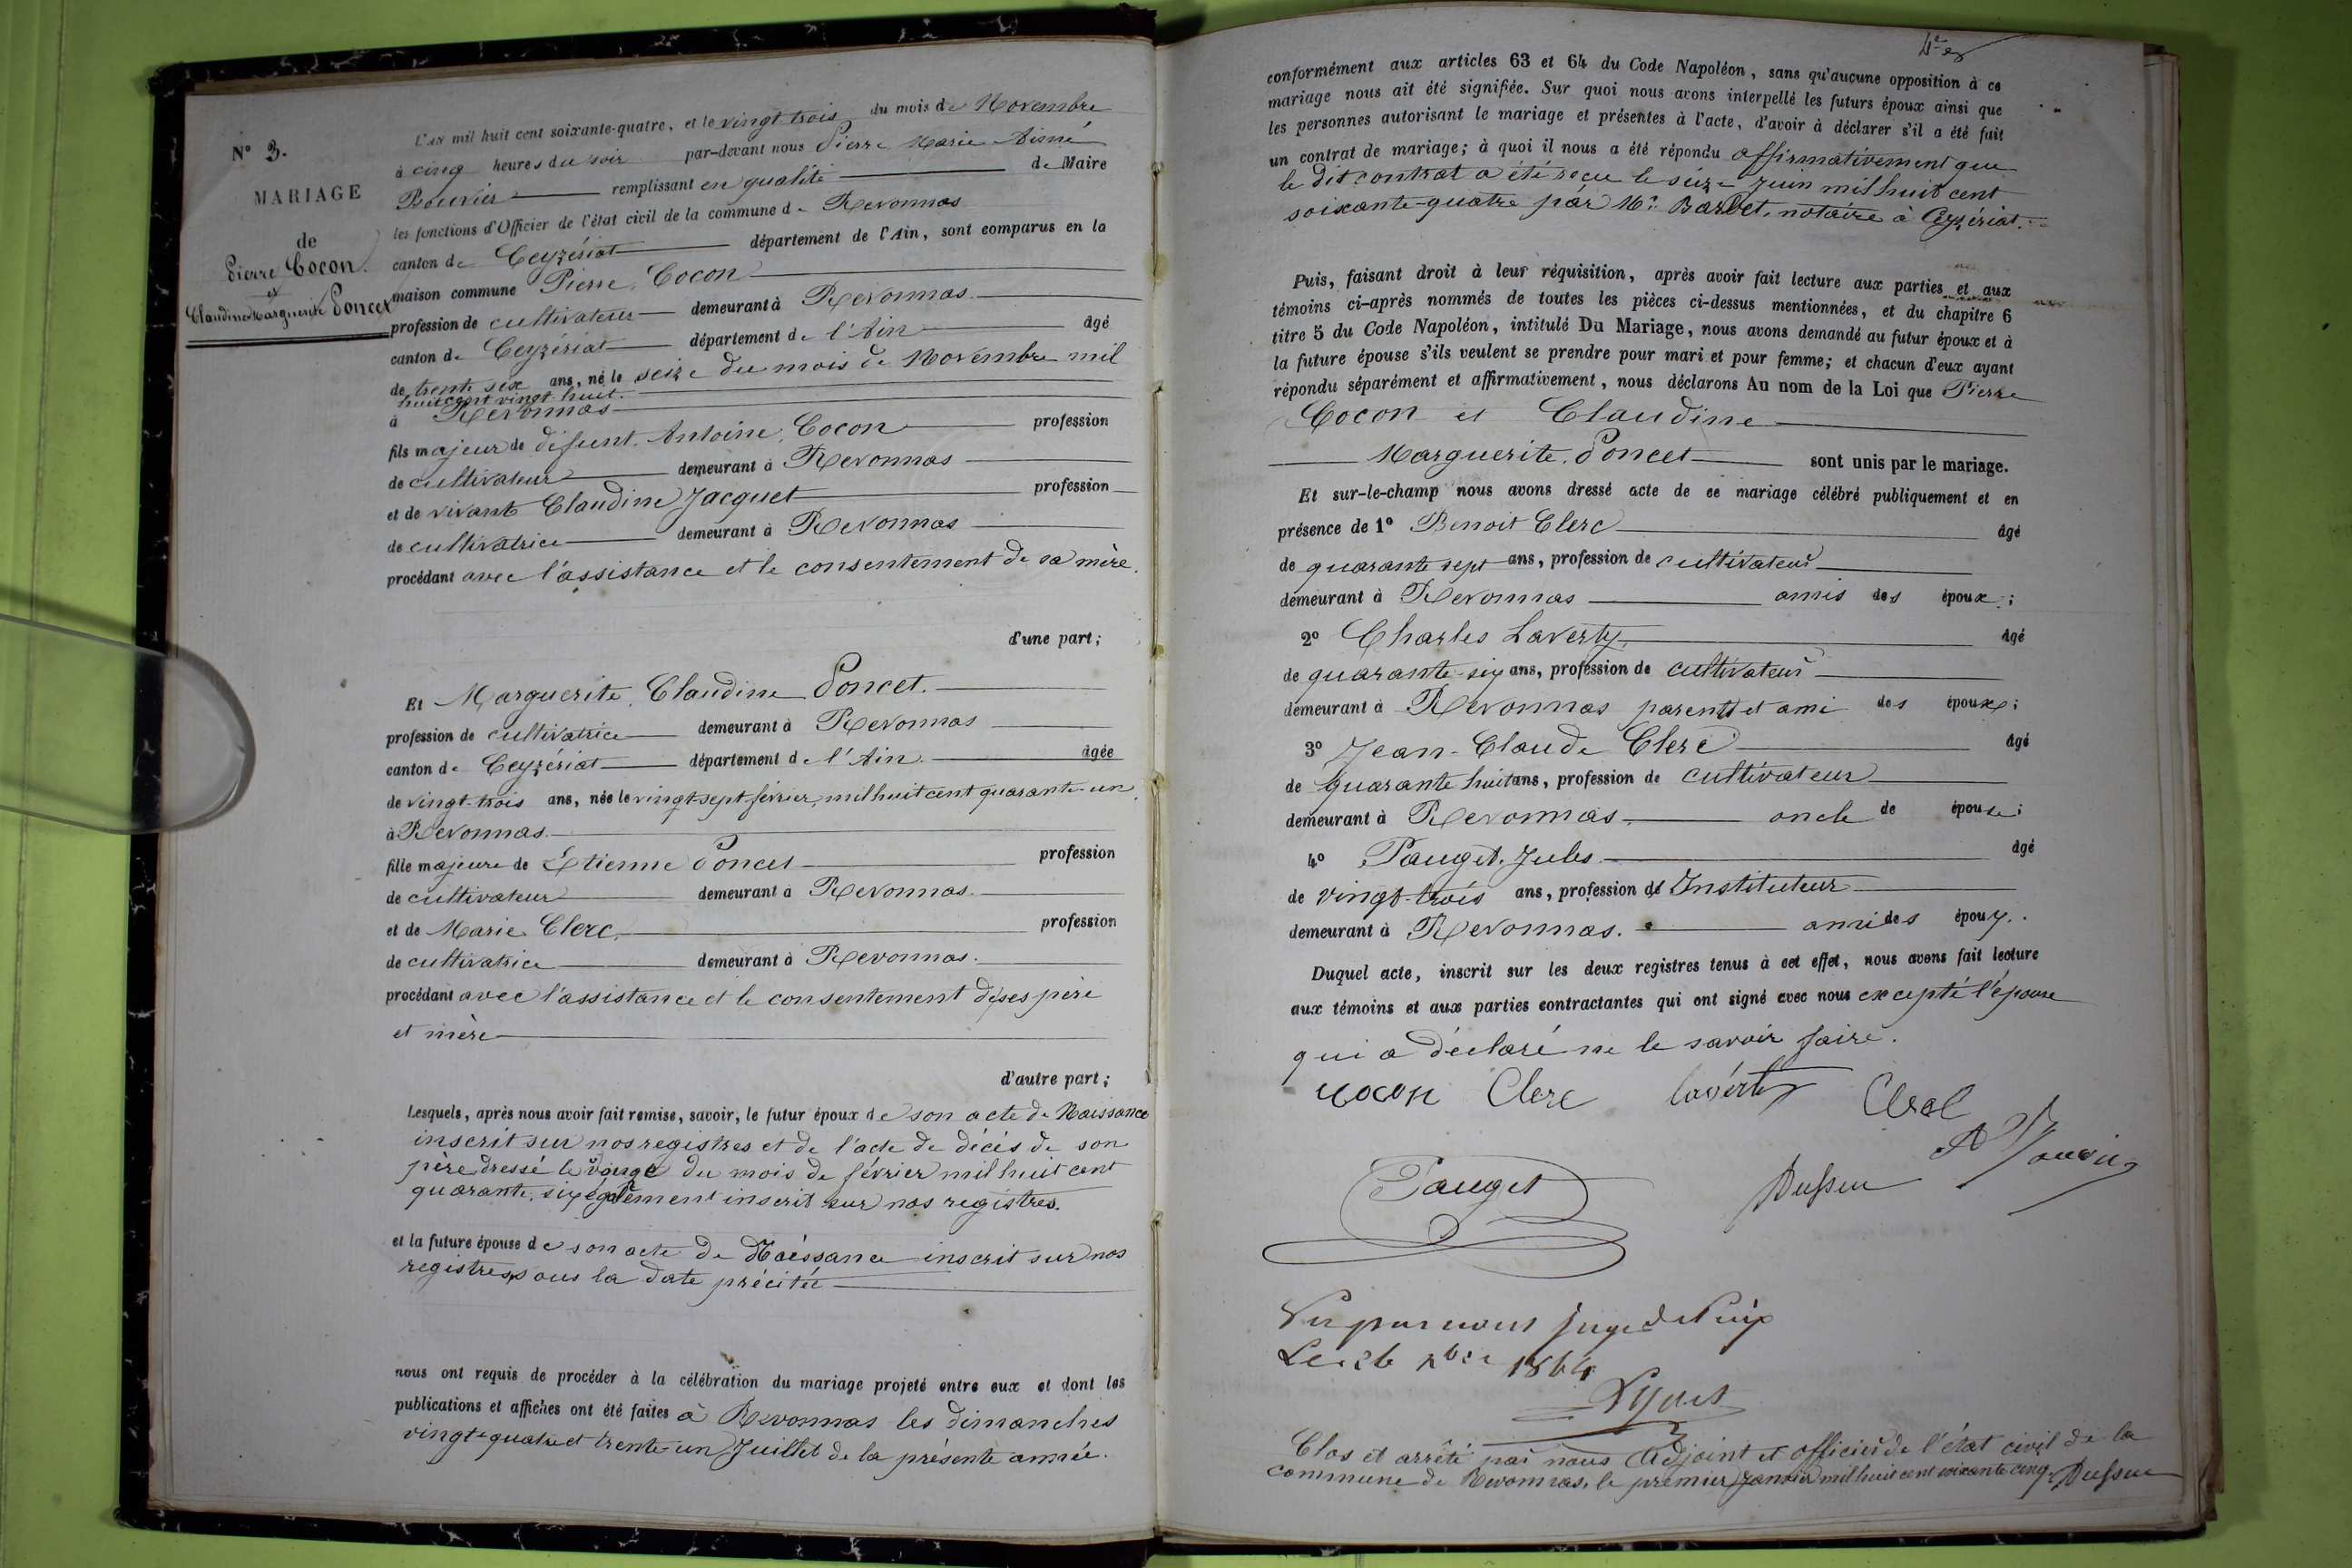 N° 3.
MARIAGE
de
Pierre Cocon
et
Claudine Marguerite Poncet
L'an mil huit cent soixante-quatre, et le vingt trois du mois de Novembre
à cinq heures du soir par-devant nous Pierre Marie Aimé
Bouvier remplissant en qualité de Maire
les fonctions d'Officier de l'état civil de la commune de Revonnas
canton de Ceyzériat département de l'Ain, sont comparus en la
maison commune Pierre Cocon
profession de cultivateur demeurant à Revonnas
canton de Ceyzériat département de l'Ain âgé
de trente six ans, né le seize du mois de Novembre mil
huit cent vingt huit.
à Revonnas
fils majeur de défunt Antoine Cocon profession
de cultivateur demeurant à Revonnas
et de vivante Claudine Jacquet profession
de cultivatrice demeurant à Revonnas
procédant avec l'assistance et le consentement de sa mère.
d'une part;
Et Marguerite Claudine Poncet.
profession de cultivatrice demeurant à Revonnas
canton de Ceyzériat département de l'Ain âgée
de vingt-trois ans, née le vingt-sept février mil huit cent quarante-un
à Revonnas
fille majeure de Étienne Poncet profession
de cultivateur demeurant à Revonnas
et de Marie Clerc profession
de cultivatrice demeurant à Revonnas.
procédant avec l'assistance et le consentement de ses père
et mère
d'autre part;
Lesquels, après nous avoir fait remise, savoir, le futur époux de son acte de Naissance
inscrit sur nos registres et de l'acte de décés de son
père dressé le du mois de février mil huit cent
quarante, six également inscrit sur nos registres.
et la future épouse de son acte de Naissance inscrit sur nos
registres sous la date précitée
nous ont requis de procéder à la célébration du mariage projeté entre eux et dont les
publications et affiches ont été faites à Revonnas les dimanches
vingt-quatre et trente-un Juillet de la présente année.
conformément aux articles 63 et 64 du Code Napoléon, sans qu'aucune opposition à ce
mariage nous ait été signifiée. Sur quoi nous avons interpellé les futurs époux ainsi que
les personnes autorisant le mariage et présentes à l'acte, d'avoir à déclarer s'il a été fait
un contrat de mariage; à quoi il nous a été répondu affirmativement que
le dit contrat a été reçu le seize Juin mil huit cent
soixante-quatre par Me Barbet, notaire à Ceyzériat.
Puis, faisant droit à leur réquisition, après avoir fait lecture aux parties et aux
témoins ci-après nommés de toutes les pièces ci-dessus mentionnées, et du chapitre 6
titre 5 du Code Napoléon, intitulé Du Mariage, nous avons demandé au futur époux et à
la future épouse s'ils veulent se prendre pour mari et pour femme; et chacun d'eux ayant
répondu séparément et affirmativement, nous déclarons Au nom de la Loi que Pierre
Cocon et Claudine
Marguerite Poncet sont unis par le mariage.
Et sur-le-champ nous avons dressé acte de ce mariage célébré publiquement et en
présence de 1° Benoit Clerc âgé
de quarante sept ans, profession de cultivateur
demeurant à Revonnas amis des époux;
2° Charles Laverty âgé
de quarante-six ans, profession de cultivateur
demeurant à Revonnas parent et ami des époux;
3° Jean-Claude Clerc âgé
de quarante huit ans, profession de cultivateur
demeurant à Revonnas oncle de épouse;
4° Pauget Jules âgé
de vingt-trois ans, profession d' Instituteur
demeurant à Revonnas. ami des époux.
Duquel acte, inscrit sur les deux registres tenus à cet effet, nous avons fait lecture
aux témoins et aux parties contractantes qui ont signé avec nous excepté l'épouse
qui a déclaré ne le savoir faire.
Cocon Clerc Laverty Clerc
A Bouvier
Pauget
Vu par nous Juge de Paix
Le 1864
Clos et arrêté par nous Adjoint et officier de l'état civil de la
commune de Revonnas, le premier Janvier mil huit cent soixante cinq.